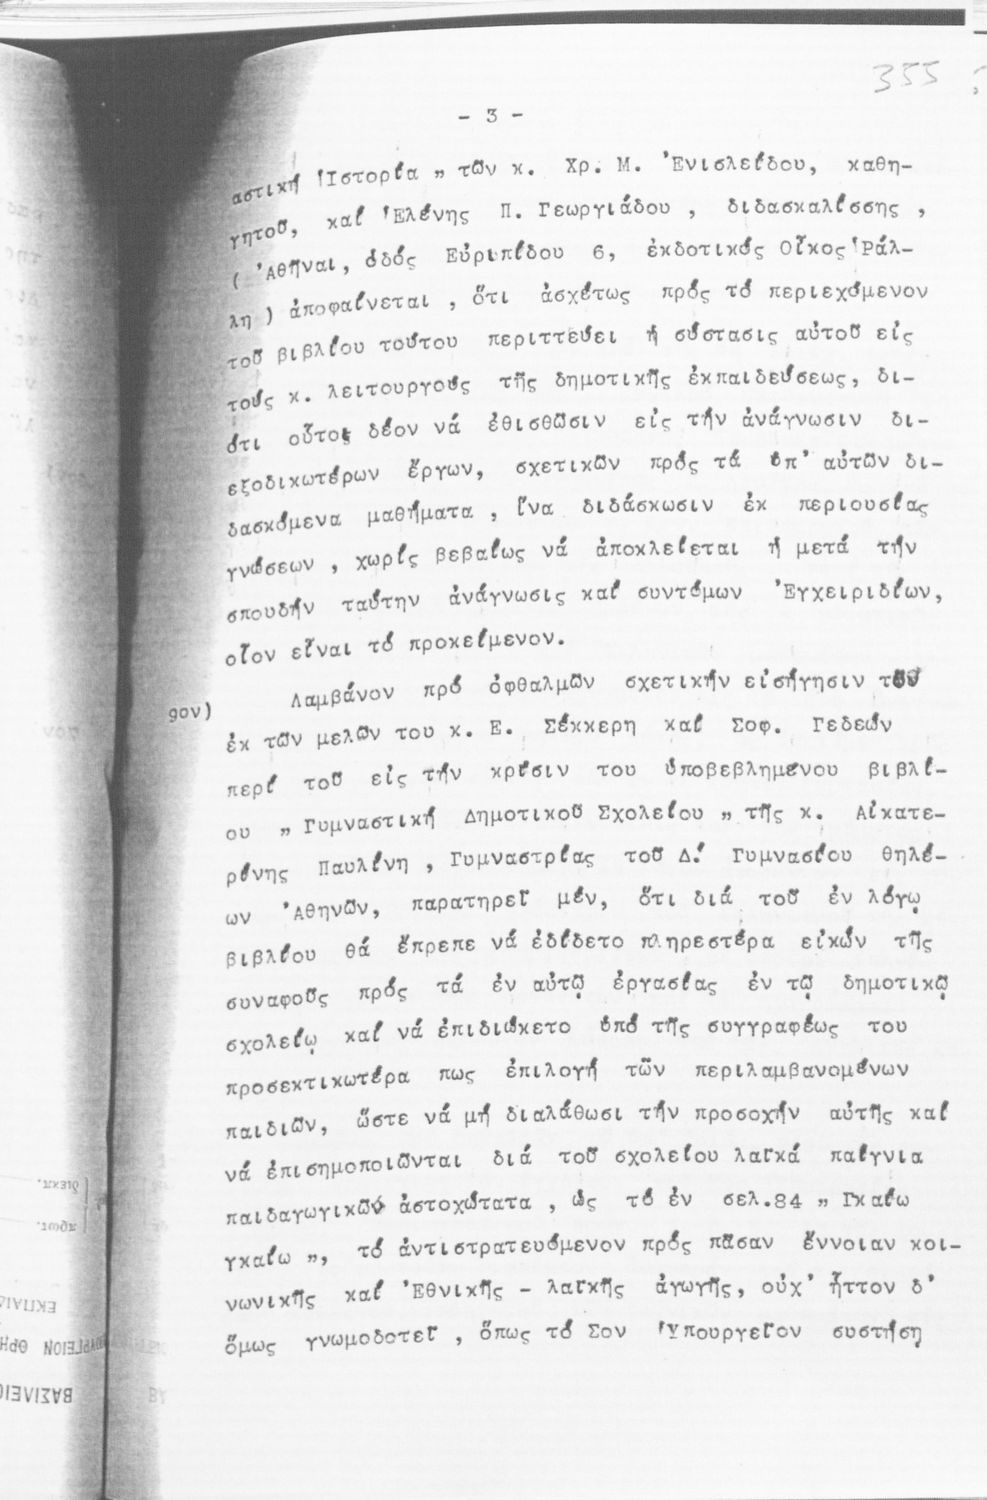 355
- 3 -
αστική Ἱστορία „ τῶν κ. Χρ. Μ. Ἐνισλείδου, καθη-
γητοῦ, καί Ἑλένης Π. Γεωργιάδου , διδασκαλίσσης ,
( Ἀθῆναι, ὁδός Εὐριπίδου 6, ἐκδοτικός Οἶκος Ῥάλ-
λη ) ἀποφαίνεται , ὅτι ἀσχέτως πρός τό περιεχόμενον
τοῦ βιβλίου τούτου περιττεύει ἡ σύστασις αὐτοῦ εἰς
τούς κ. λειτουργούς τῆς δημοτικῆς ἐκπαιδεύσεως, δι-
ότι οὗτοι δέον νά ἐθισθῶσιν εἰς τήν ἀνάγνωσιν δι-
εξοδικωτέρων ἔργων, σχετικῶν πρός τά ὑπ' αὐτῶν δι-
δασκόμενα μαθήματα , ἵνα διδάσκωσιν ἐκ περιουσίας
γνώσεων , χωρίς βεβαίως νά ἀποκλείεται ἡ μετά τήν
σπουδήν ταύτην ἀνάγνωσις καί συντόμων Ἐγχειριδίων,
οἷον εἶναι τό προκείμενον.
9ον) Λαμβάνον πρό ὀφθαλμῶν σχετικήν εἰσήγησιν τῶν
ἐκ τῶν μελῶν του κ. Ε. Σέκκερη καί Σοφ. Γεδεών
περί τοῦ εἰς τήν κρίσιν του ὑποβεβλημένου βιβλί-
ου „ Γυμναστική Δημοτικοῦ Σχολείου „ τῆς κ. Αἰκατε-
ρίνης Παυλίνη , Γυμναστρίας τοῦ Δ.΄ Γυμνασίου θηλέ-
ων Ἀθηνῶν, παρατηρεῖ μέν, ὅτι διά τοῦ ἐν λόγῳ
βιβλίου θά ἔπρεπε νά ἐδίδετο πληρεστέρα εἰκών τῆς
συναφοῦς πρός τά ἐν αὐτῷ ἐργασίας ἐν τῷ δημοτικῷ
σχολείῳ καί νά ἐπιδιώκετο ὑπό τῆς συγγραφέως του
προσεκτικωτέρα πως ἐπιλογή τῶν περιλαμβανομένων
παιδιῶν, ὥστε νά μή διαλάθωσι τήν προσοχήν αὐτῆς καί
νά ἐπισημοποιῶνται διά τοῦ σχολείου λαϊκά παίγνια
παιδαγωγικῶς ἀστοχώτατα , ὡς τό ἐν σελ.84 „ Γκαίω
γκαίω „, τό ἀντιστρατευόμενον πρός πᾶσαν ἔννοιαν κοι-
νωνικῆς καί Ἐθνικῆς - λαϊκῆς ἀγωγῆς, οὐχ' ἧττον δ'
ὅμως γνωμοδοτεῖ , ὅπως τό Σον Ὑπουργεῖον συστήσῃ